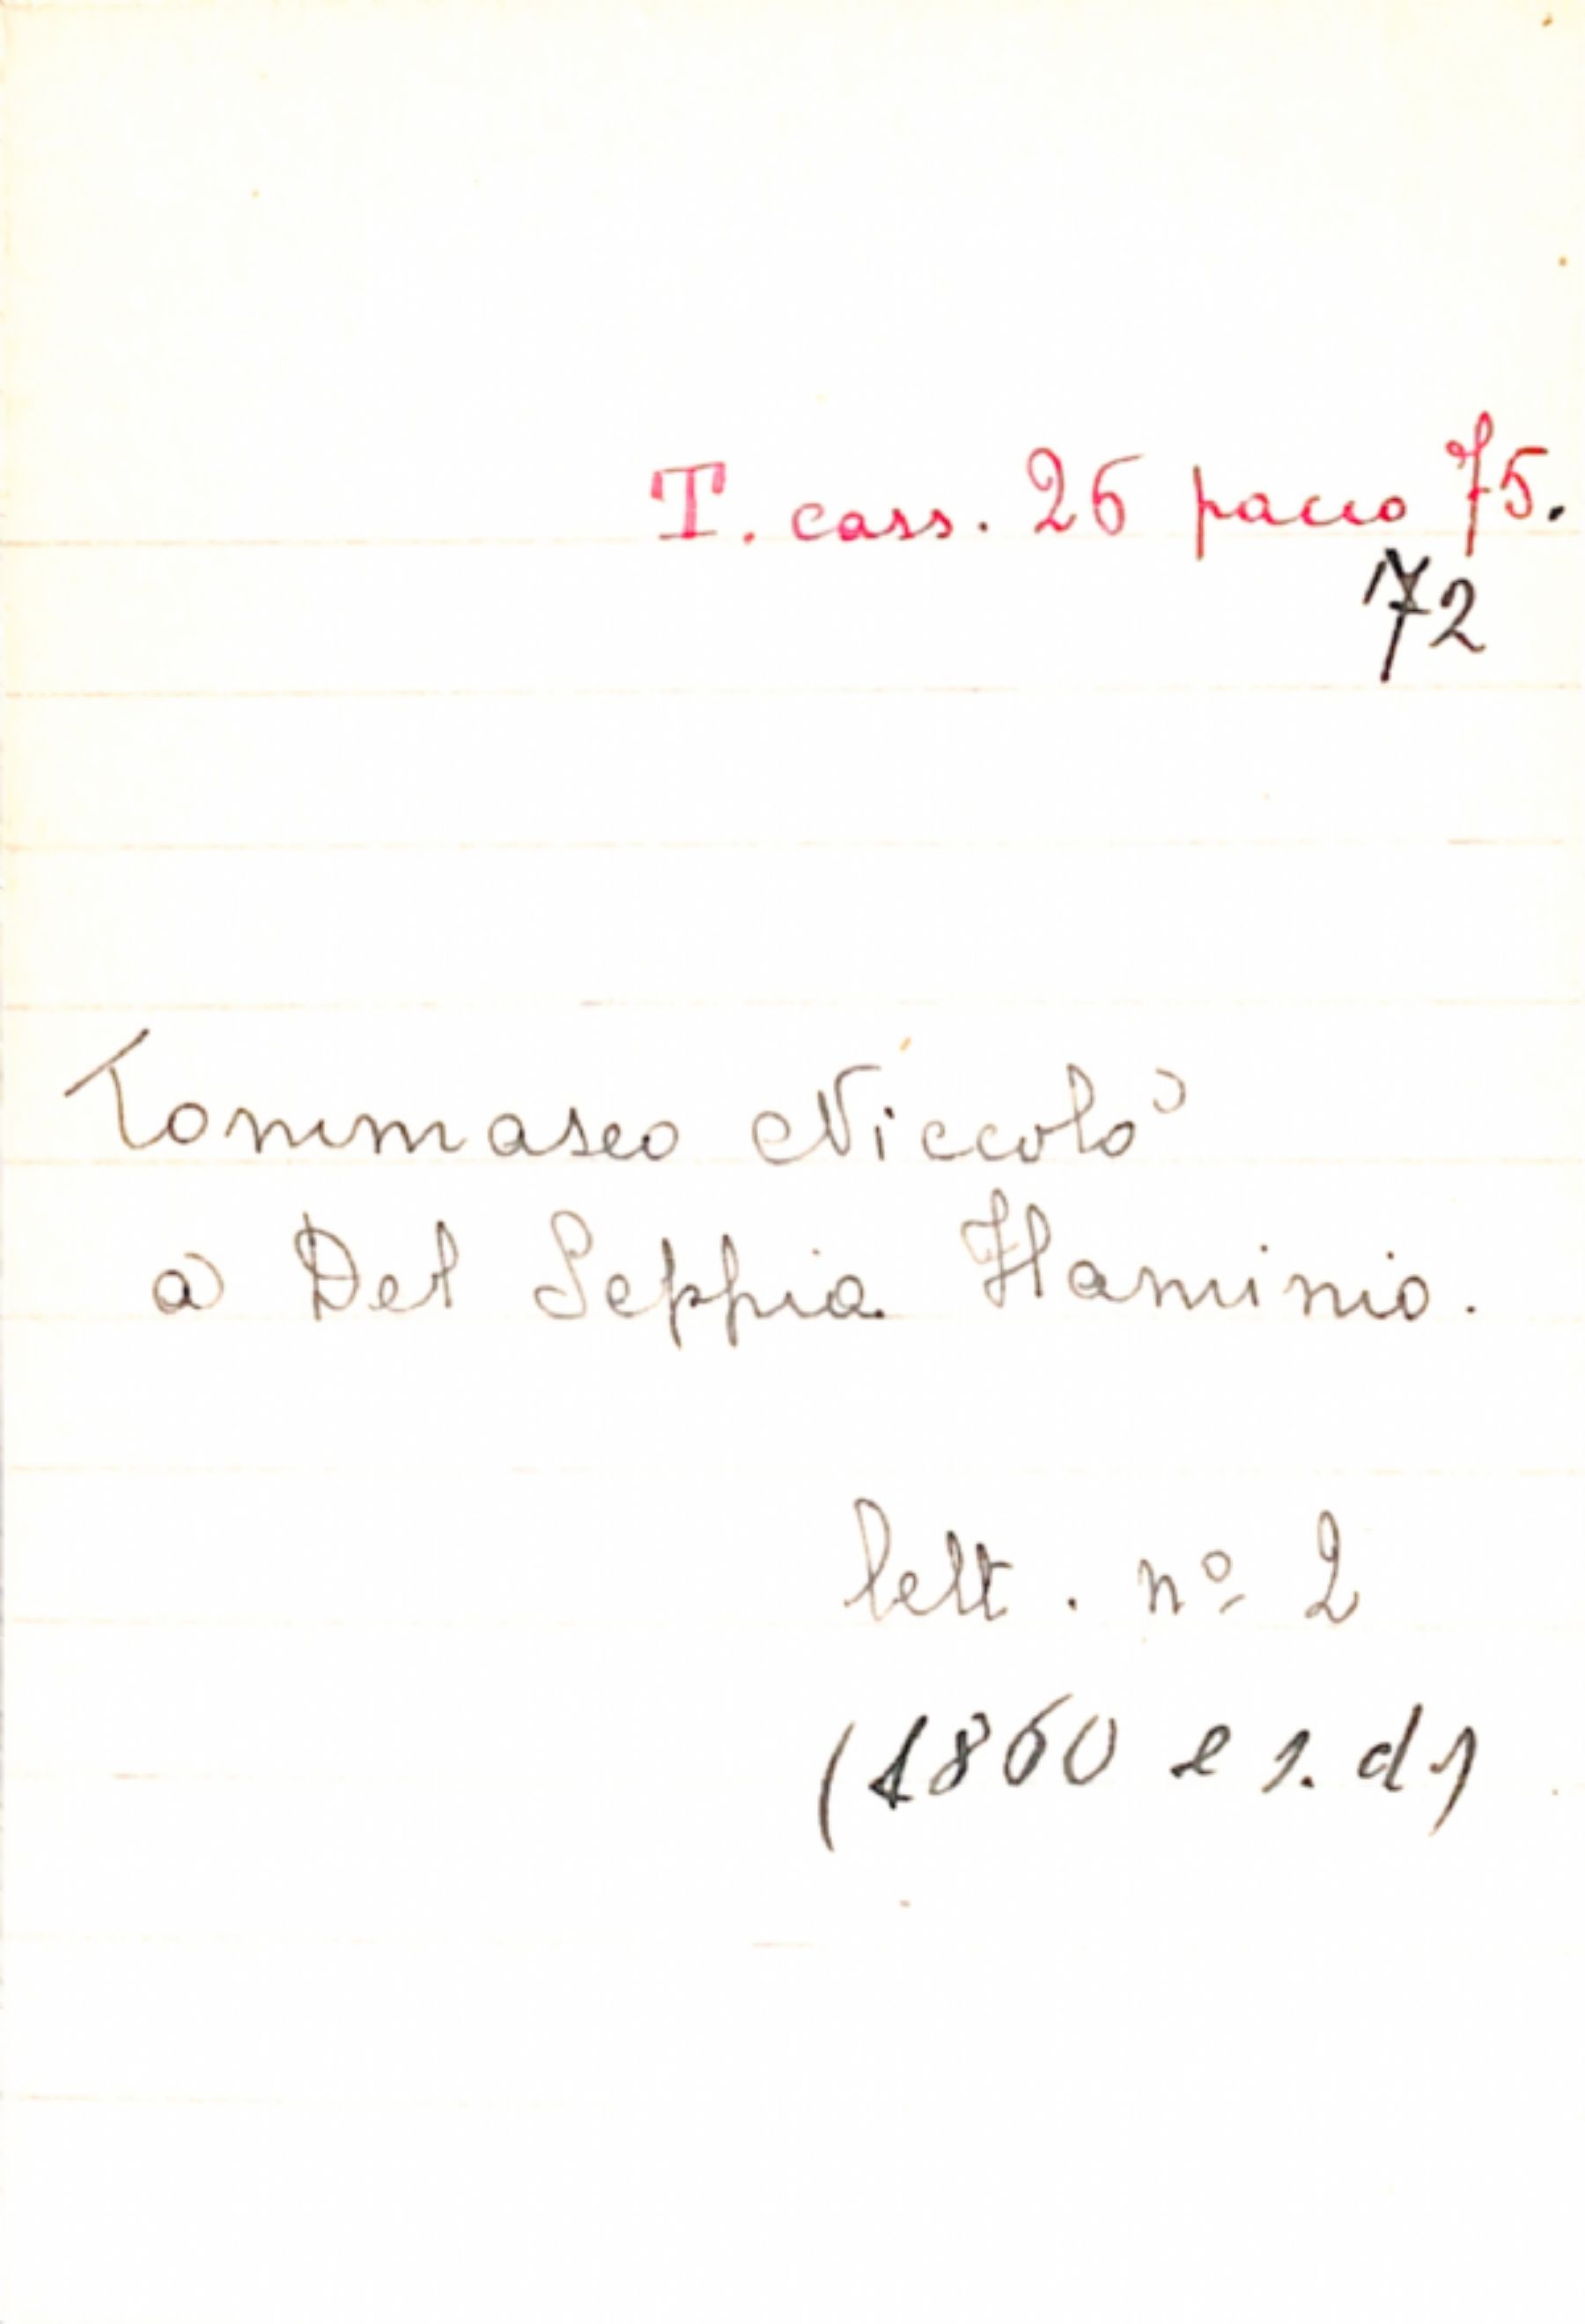 T. cass. 26 pacco 75.
72
Tommaseo Niccolò
a Del Seppia Flaminio.
lett. nº 2
(1860 e s. d)